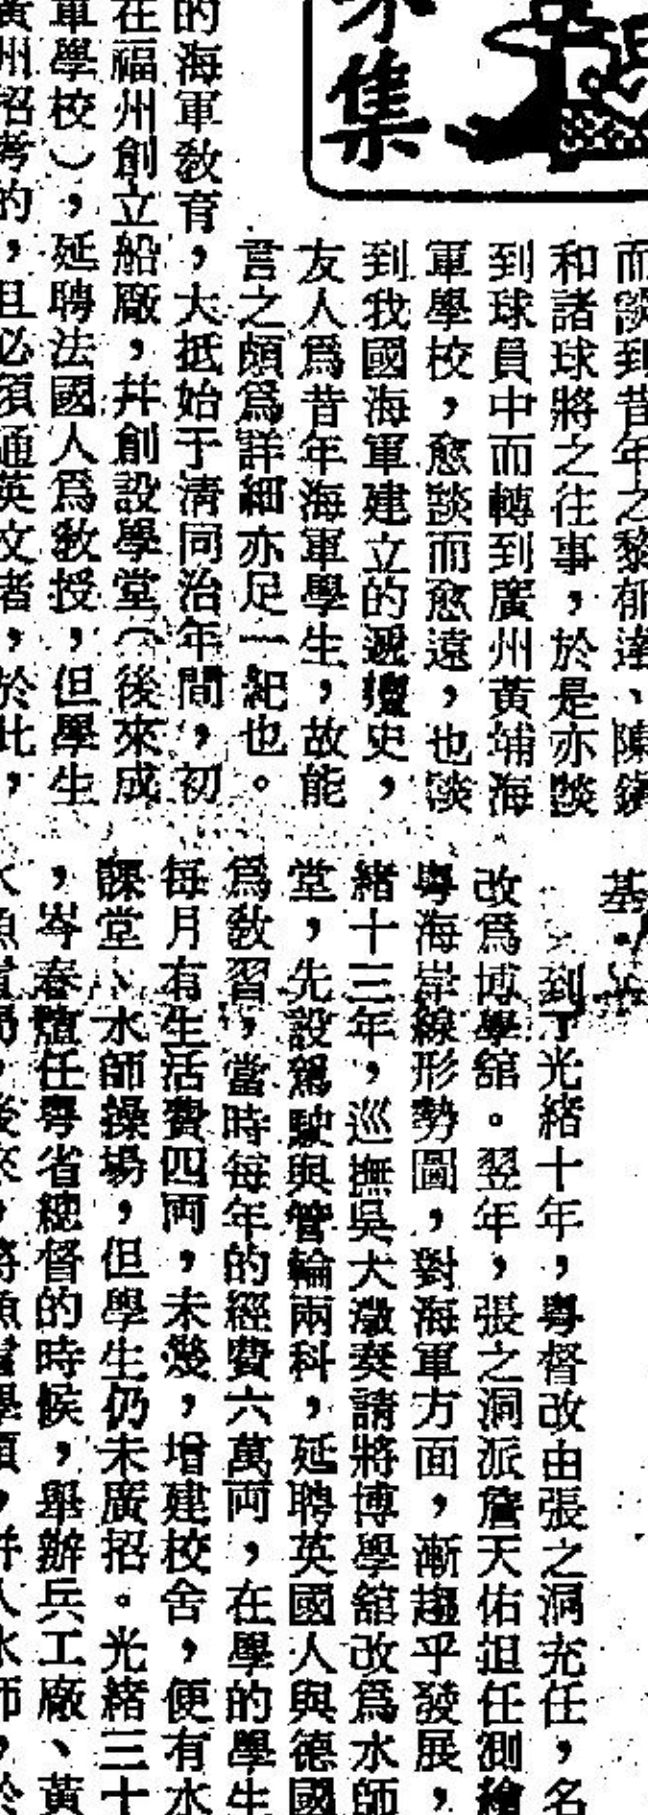 集
而談到昔年之黎郁達、陳鎮
和諸球將之往事，於是亦談
到球員中而轉到廣州黃埔海
軍學校，愈談而愈遠，也談
到我國海軍建立的遞嬗史，
友人爲昔年海軍學生，故能
言之頗爲詳細亦足一紀也。
的海軍敎育，大抵始于清同治年間，初
在福州創立船廠，幷創設學堂（後來成
軍學校），延聘法國人爲敎授，但學生
廣州招考的，且必須通英文者，於此，
基
到了光緒十年，粤督改由張之洞充任，名
改爲博學舘。翌年，張之洞派詹天佑担任測繪
粤海岸線形勢圖，對海軍方面，漸趨乎發展，
緒十三年，巡撫吳大澂奏請將博學舘改爲水師
堂，先設駕駛與管輪兩科，延聘英國人與德國
爲敎習，當時每年的經費六萬両，在學的學生
每月有生活費四両，未幾，增建校舍，便有水
課堂、水師操場，但學生仍未廣招。光緒三十
，岑春萱任粤省總督的時候，舉辦兵工廠、黃